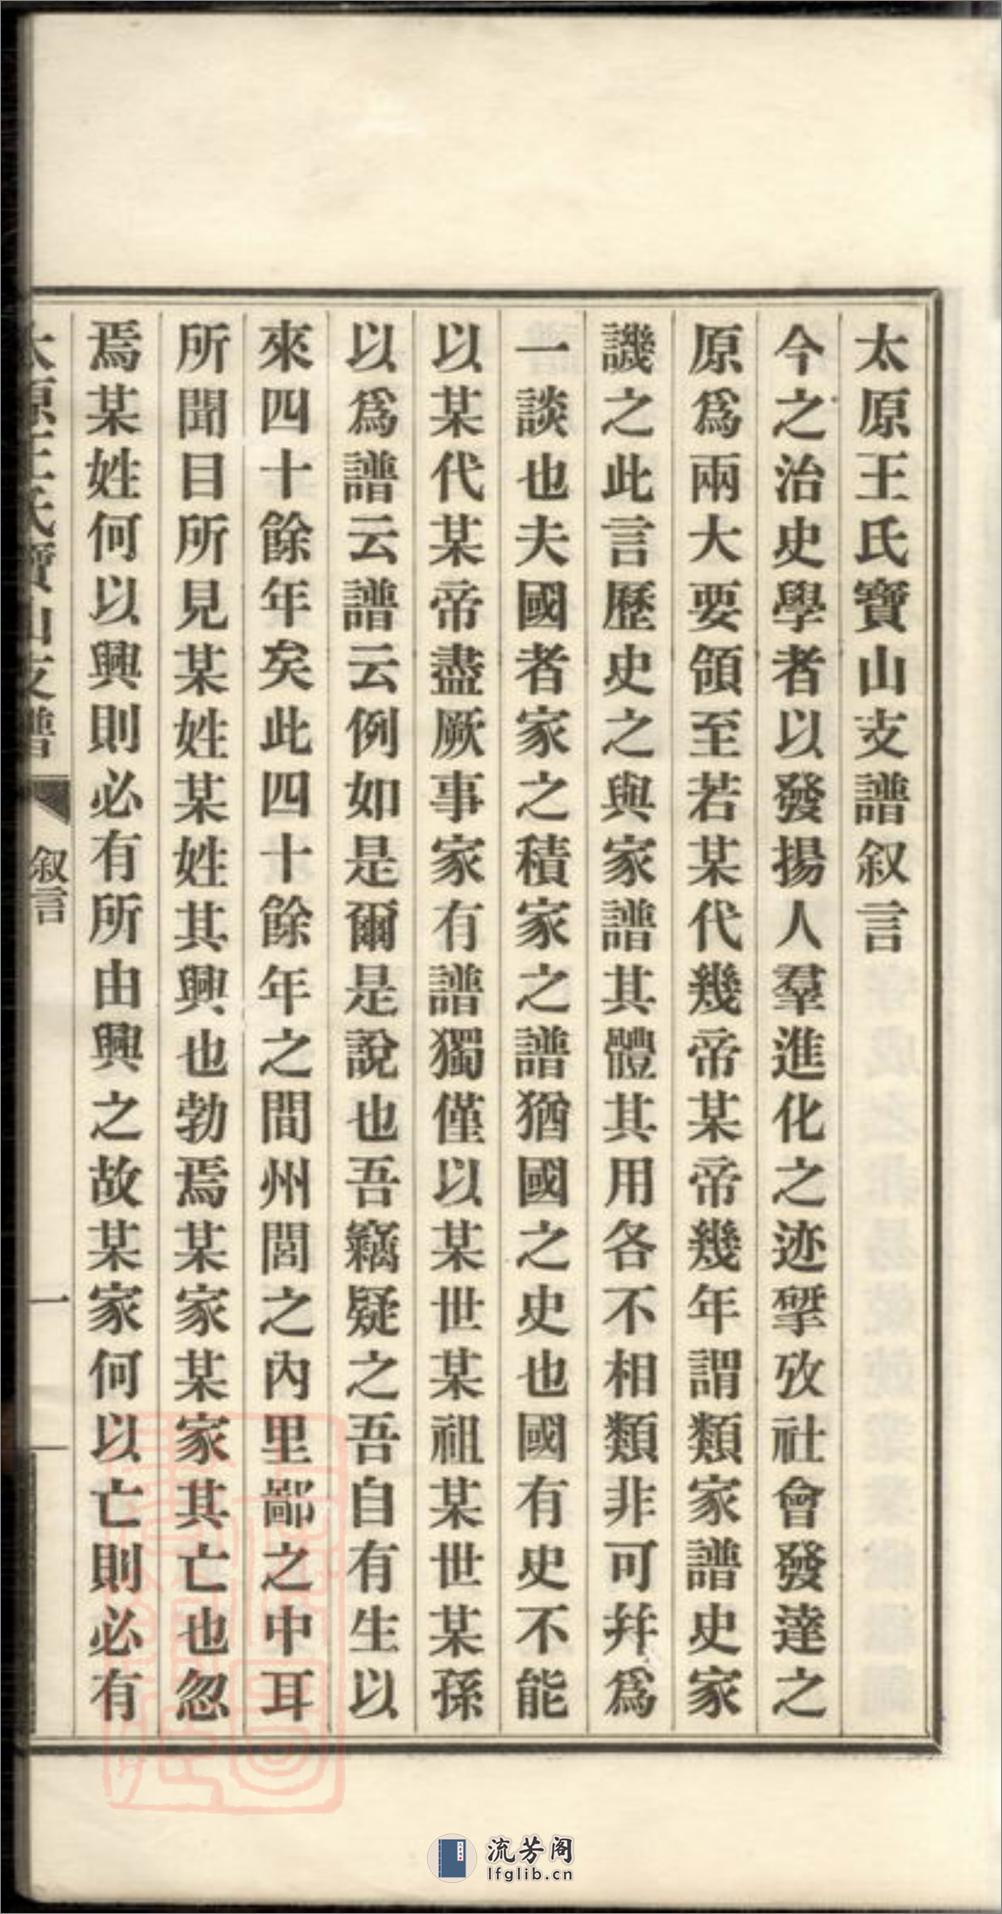 太原王氏寶山支譜叙言
今之治史學者以發揚人羣進化之迹揅攷社會發達之
原爲兩大要領至若某代幾帝某帝幾年謂類家譜史家
譏之此言歷史之與家譜其體其用各不相類非可幷爲
一談也夫國者家之積家之譜猶國之史也國有史不能
以某代某帝盡厥事家有譜獨僅以某世某祖某世某孫
以爲譜云譜云例如是爾是說也吾竊疑之吾自有生以
來四十餘年矣此四十餘年之間州閭之內里鄙之中耳
所聞目所見某姓某姓其興也勃焉某家某家其亡也忽
焉某姓何以興則必有所由興之故某家何以亡則必有
太原王氏寶山支譜 叙言 一
流芳阁
lfglib.cn